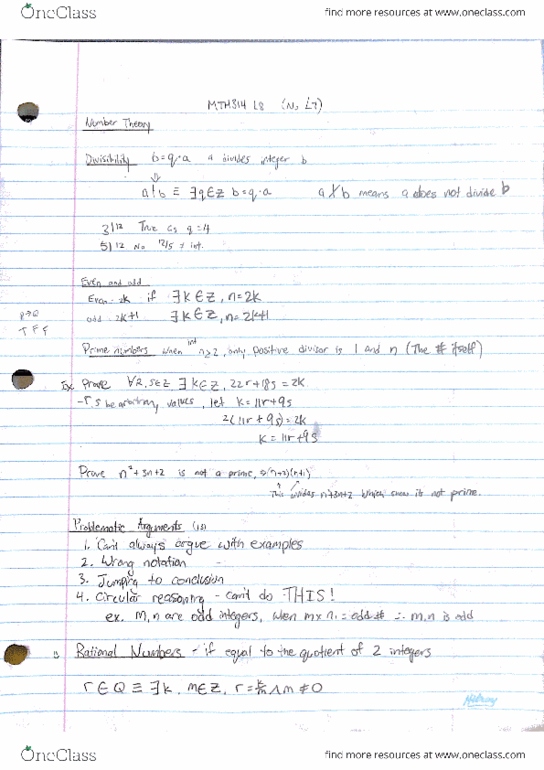 OneClass
find more resources at www.oneclass.com
MTH314 L8 (N, L7)
Number Theory
Divisibility b=q·a a divides integer b
⇓
a|b ≡ ∃q∈Z b=q·a a∤b means a does not divide b
3|12 True as q=4
5|12 No 12/5 ≠ int.
Even and odd
Even=2k if ∃k∈Z, n=2k
odd 2k+1 ∃k∈Z, n=2k+1
P→Q
T F F
Prime numbers when int n≥2, only positive divisor is 1 and n (The # itself)
Ex. Prove ∀r,s∈Z ∃k∈Z, 22r+18s=2k
-r,s be arbitrary values, let k=11r+9s
2(11r+9s)=2k
k=11r+9s
Prove n²+3n+2 is not a prime, (n+2)(n+1)
This divides n²+3n+2 which show it not prime.
Problematic Arguments
1. Can't always argue with examples
2. Wrong notation
3. Jumping to conclusion
4. Circular reasoning - can't do THIS!
ex. m,n are odd integers, when m×n = odd # ∴ m,n is odd
Rational Numbers - if equal to the quotient of 2 integers
r∈Q ≡ ∃k, m∈Z, r=k/m ∧ m≠0
OneClass
find more resources at www.oneclass.com